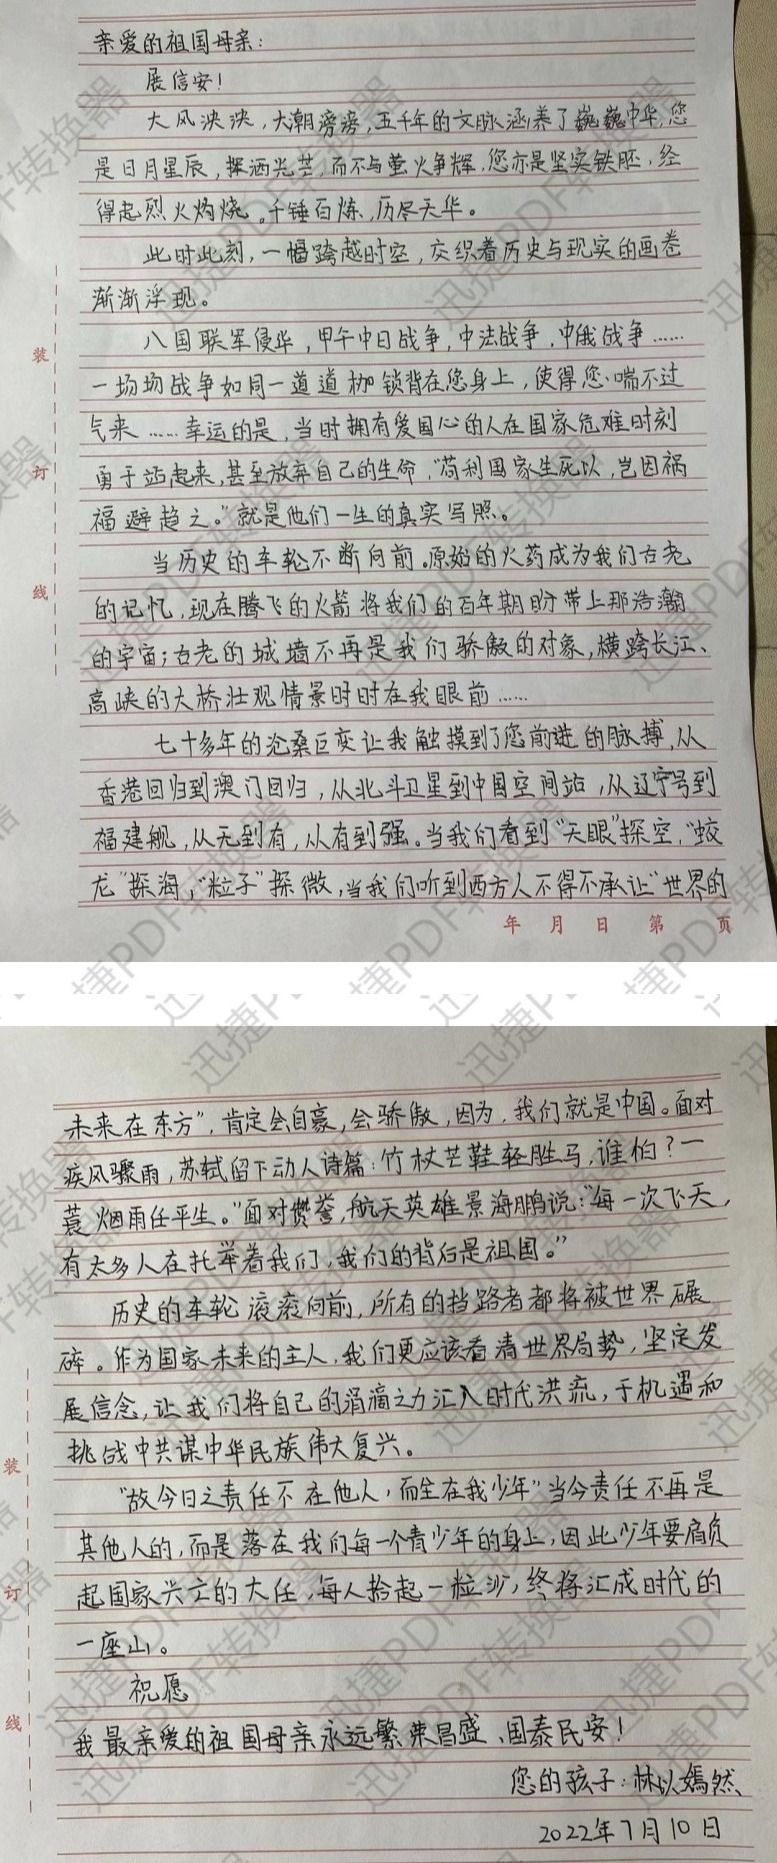 亲爱的祖国母亲：
展信安！
大风泱泱，大潮滂滂，五千年的文脉涵养了巍巍中华，您
是日月星辰，挥洒光芒，而不与萤火争辉，您亦是坚实铁胚，经
得起烈火灼烧，千锤百炼，历尽天华。
此时此刻，一幅跨越时空，交织着历史与现实的画卷
渐渐浮现。
八国联军侵华，甲午中日战争，中法战争，中俄战争……
一场场战争如同一道道枷锁背在您身上，使得您喘不过
气来……幸运的是，当时拥有爱国心的人在国家危难时刻
勇于站起来，甚至放弃自己的生命，“苟利国家生死以，岂因祸
福避趋之。”就是他们一生的真实写照。
当历史的车轮不断向前。原始的火药成为我们古老
的记忆，现在腾飞的火箭将我们的百年期盼带上那浩瀚
的宇宙；古老的城墙不再是我们骄傲的对象，横跨长江、
高峡的大桥壮观情景时时在我眼前……
七十多年的沧桑巨变让我触摸到了您前进的脉搏，从
香港回归到澳门回归，从北斗卫星到中国空间站，从辽宁号到
福建舰，从无到有，从有到强。当我们看到“天眼”探空，“蛟
龙”探海，“粒子”探微，当我们听到西方人不得不承让“世界的
年 月 日 第 页
未来在东方”，肯定会自豪，会骄傲，因为，我们就是中国。面对
疾风骤雨，苏轼留下动人诗篇：竹杖芒鞋轻胜马，谁怕？一
蓑烟雨任平生。”面对赞誉，航天英雄景海鹏说：“每一次飞天，
有太多人在托举着我们，我们的背后是祖国。”
历史的车轮滚滚向前，所有的挡路者都将被世界碾
碎。作为国家未来的主人，我们更应该看清世界局势，坚定发
展信念，让我们将自己的涓滴之力汇入时代洪流，于机遇和
挑战中共谋中华民族伟大复兴。
“故今日之责任不在他人，而全在我少年”当今责任不再是
其他人的，而是落在我们每一个青少年的身上，因此少年要肩负
起国家兴亡的大任，每人拾起一粒沙，终将汇成时代的
一座山。
祝愿
我最亲爱的祖国母亲永远繁荣昌盛、国泰民安！
您的孩子：林以嫣然
2022年7月10日
装
订
线
装
订
线
迅捷PDF转换器